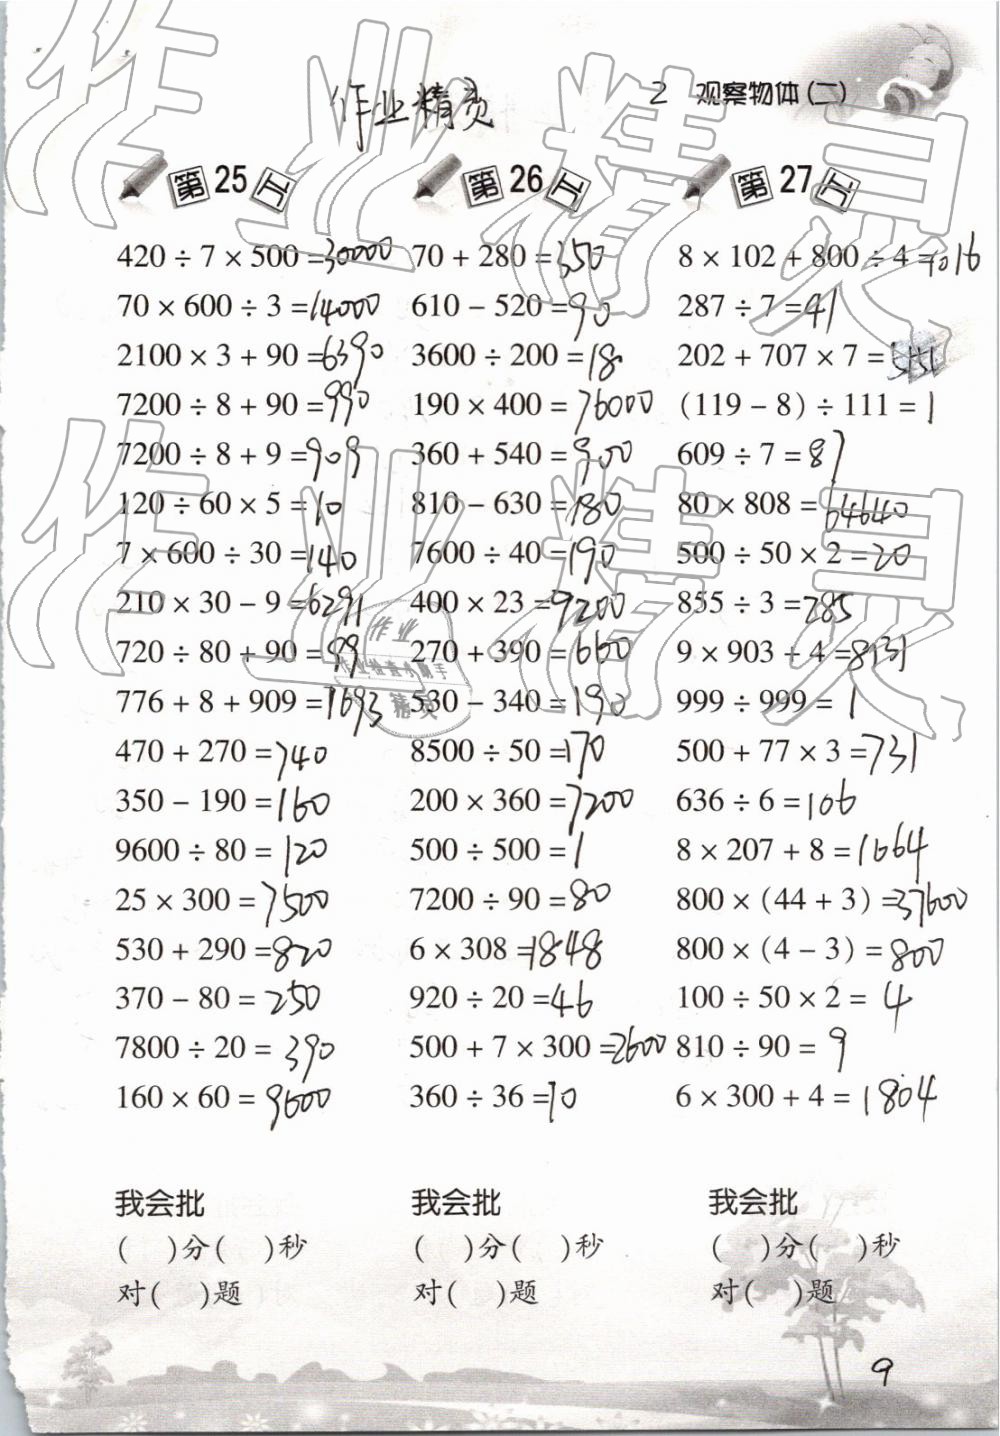 2 观察物体(二)
作业精灵
第25天
420÷7×500=30000
70×600÷3=14000
2100×3+90=6390
7200÷8+90=990
7200÷8+9=909
120÷60×5=10
7×600÷30=140
210×30-9=6291
720÷80+90=99
776+8+909=1693
470+270=740
350-190=160
9600÷80=120
25×300=7500
530+290=820
370-80=250
7800÷20=390
160×60=9600
我会批
( )分( )秒
对( )题
第26天
70+280=350
610-520=90
3600÷200=18
190×400=76000
360+540=900
810-630=180
7600÷40=190
400×23=9200
270+390=660
530-340=190
8500÷50=170
200×360=7200
500÷500=1
7200÷90=80
6×308=1848
920÷20=46
500+7×300=2600
360÷36=10
我会批
( )分( )秒
对( )题
第27天
8×102+800÷4=1016
287÷7=41
202+707×7=5151
(119-8)÷111=1
609÷7=87
80×808=64640
500÷50×2=20
855÷3=285
9×903+4=8131
999÷999=1
500+77×3=731
636÷6=106
8×207+8=1664
800×(44+3)=37600
800×(4-3)=800
100÷50×2=4
810÷90=9
6×300+4=1804
我会批
( )分( )秒
对( )题
作业
作业检查小助手
精灵
9
作业精灵
作业精灵